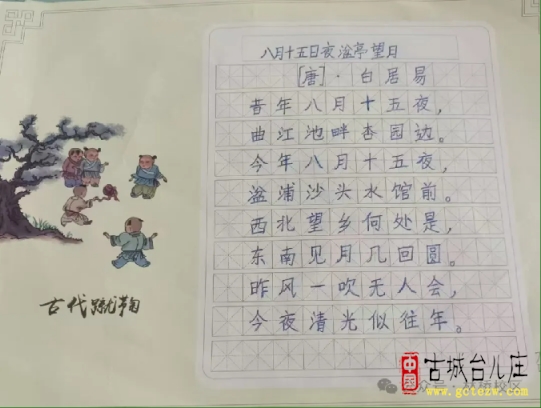 八月十五日夜湓亭望月
[唐]·白居易
昔年八月十五夜，
曲江池畔杏园边。
今年八月十五夜，
湓浦沙头水馆前。
西北望乡何处是，
东南见月几回圆。
昨风一吹无人会，
今夜清光似往年。
古代蹴鞠
中国 古城台儿庄
www.gctezw.com